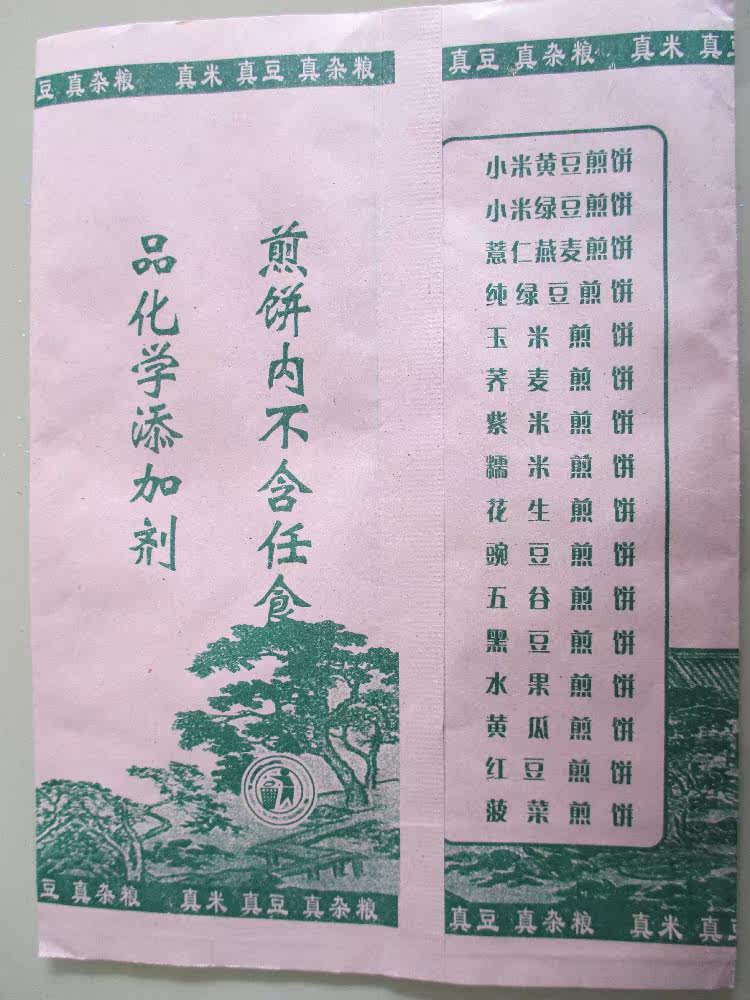 豆 真杂粮 真米 真豆 真杂粮
真豆 真杂粮 真米 真豆
煎饼内不含任食
品化学添加剂
小米黄豆煎饼
小米绿豆煎饼
薏仁燕麦煎饼
纯绿豆煎饼
玉米煎饼
荞麦煎饼
紫米煎饼
糯米煎饼
花生煎饼
豌豆煎饼
五谷煎饼
黑豆煎饼
水果煎饼
黄瓜煎饼
红豆煎饼
菠菜煎饼
豆 真杂粮 真米 真豆 真杂粮
真豆 真杂粮 真米 真豆